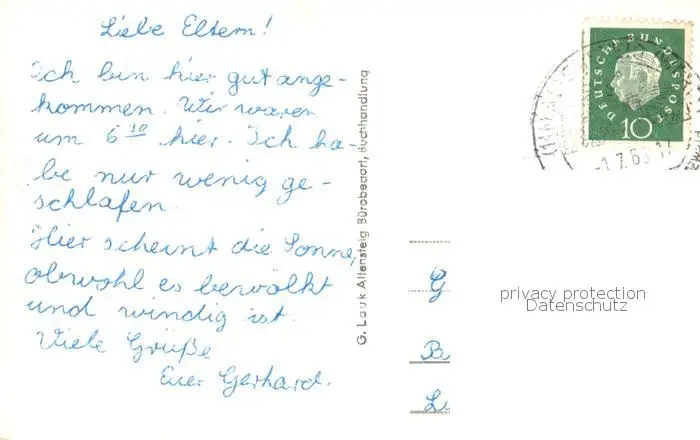 Liebe Eltern!
Ich bin hier gut ange-
kommen. Wir waren
um 6 30 hier. Ich ha-
be nur wenig ge-
schlafen.
Hier scheint die Sonne,
obwohl es bewölkt
und windig ist.
Viele Grüße
Euer Gerhard.
G. Lauk Altensteig Bürobedarf, Buchhandlung
DEUTSCHE BUNDESPOST
10
G
B
L
privacy protection
Datenschutz